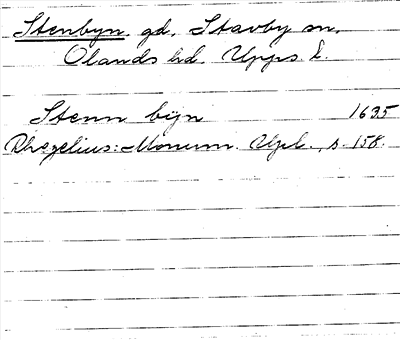 Stenbyn gd, Stavby sn,
Olands hd. Upps l.
Stenn byn 1635
Rhezelius: Monum. Upl., s. 158.